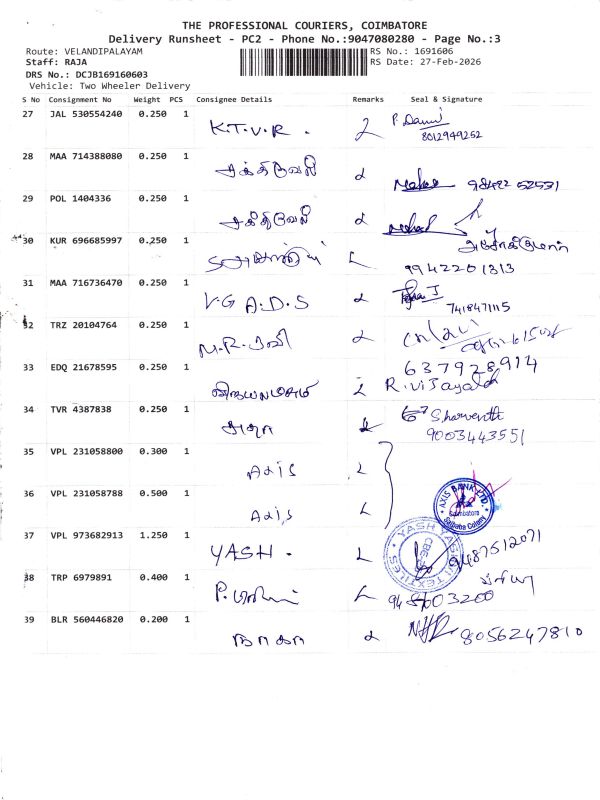 THE PROFESSIONAL COURIERS, COIMBATORE
Delivery Runsheet - PC2 - Phone No.:9047080280 - Page No.:3
Route: VELANDIPALAYAM RS No.: 1691606
Staff: RAJA RS Date: 27-Feb-2026
DRS No.: DCJB169160603
Vehicle: Two Wheeler Delivery
S No Consignment No Weight PCS Consignee Details Remarks Seal & Signature
27 JAL 530554240 0.250 1 K.T.V.R. P. Daniel
8012949252
28 MAA 714388080 0.250 1 சக்திவேல் 98422 52531
29 POL 1404336 0.250 1 சக்திவேல்
30 KUR 696685997 0.250 1
9942201313
31 MAA 716736470 0.250 1 V.G A.D.S
7418471115
32 TRZ 20104764 0.250 1 M.R. ரவி
637928914
33 EDQ 21678595 0.250 1 R.vijayal
34 TVR 4387838 0.250 1 Sharventh
9003443551
35 VPL 231058800 0.300 1 Axis
36 VPL 231058788 0.500 1 Axis AXIS BANK LTD. Coimbatore Saibaba Colony
37 VPL 973682913 1.250 1 YASH. YASH TEXTILES CBE 9487512071
38 TRP 6979891 0.400 1
39 BLR 560446820 0.200 1 8056247810